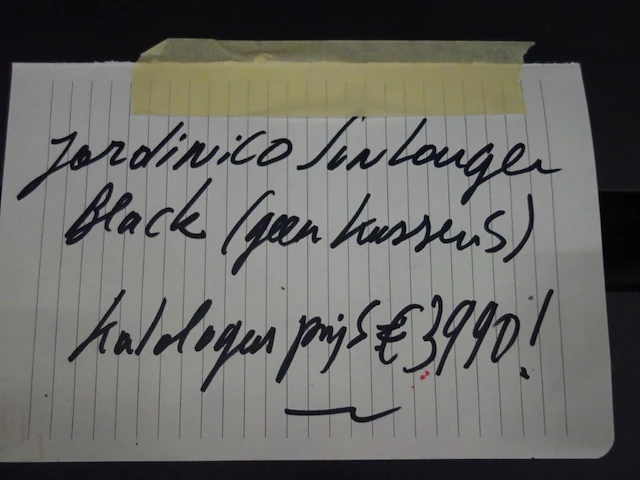 Jardinico Sunlounger
Black (geen kussens)
Katalogus prijs € 3990!